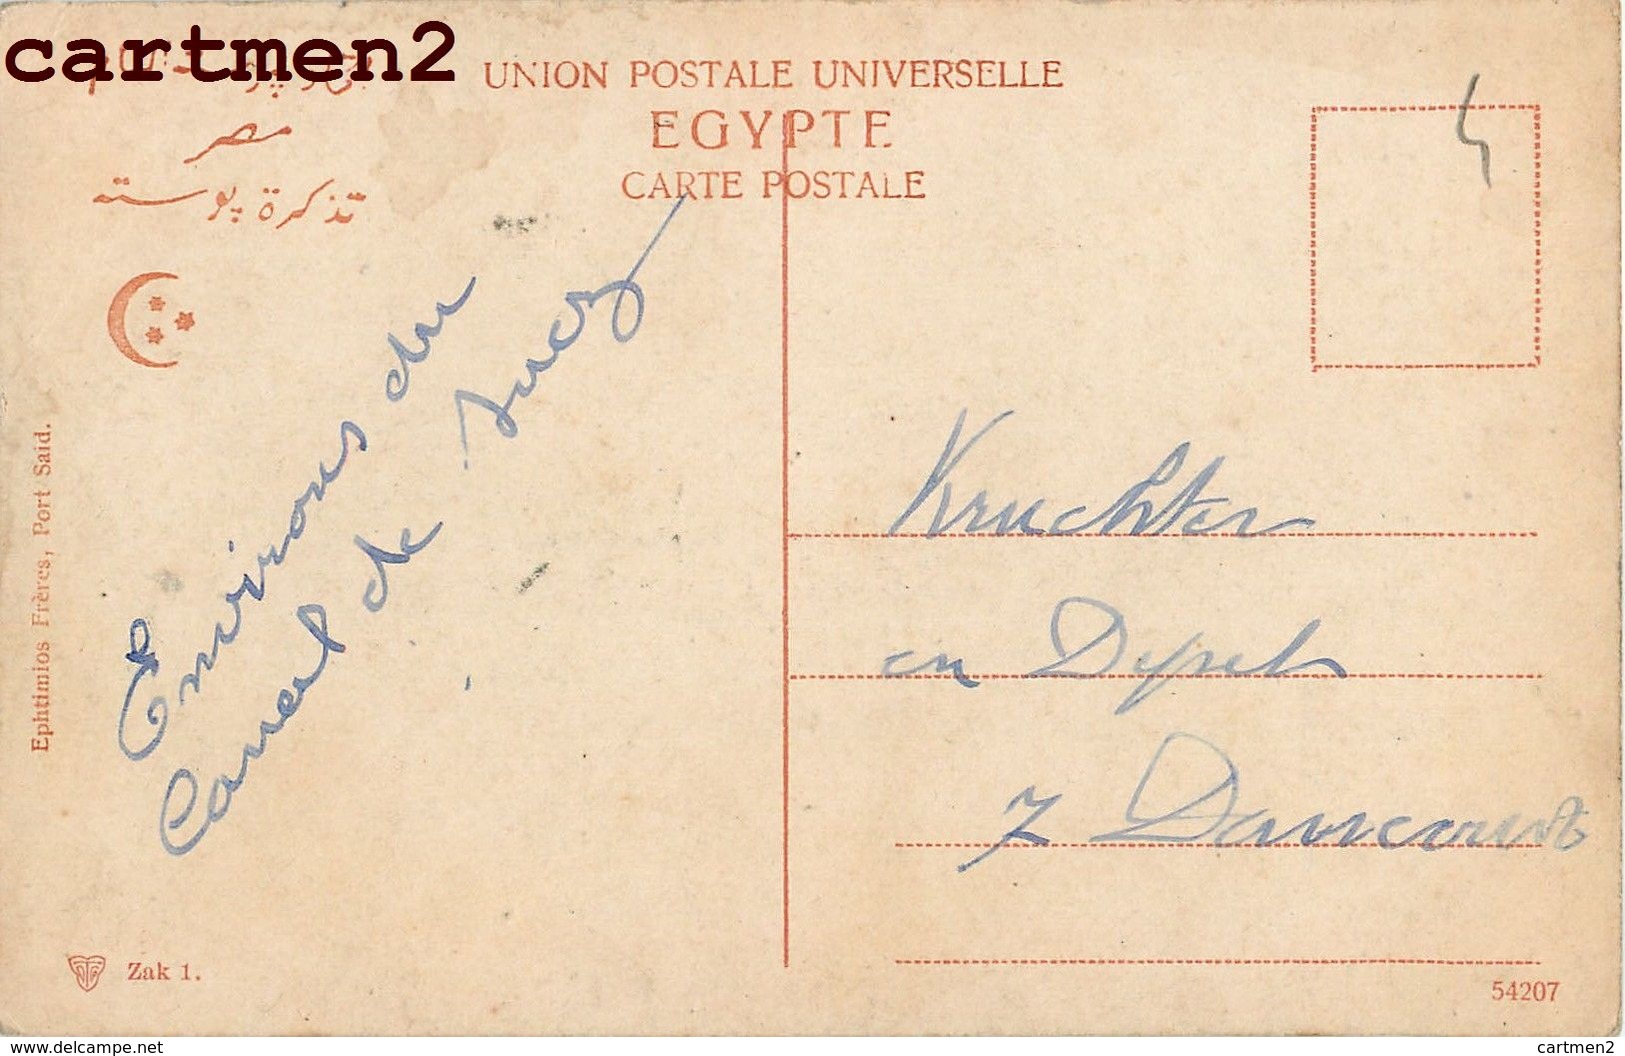 cartmen2
UNION POSTALE UNIVERSELLE
EGYPTE
CARTE POSTALE
مصر
تذكرة پوسته
Ephtimios Frères, Port Said.
Environs du
Canal de Suez
Kruchter
en Depot
7 Dancourt
Zak 1.
54207
https://www.delcampe.net
cartmen2